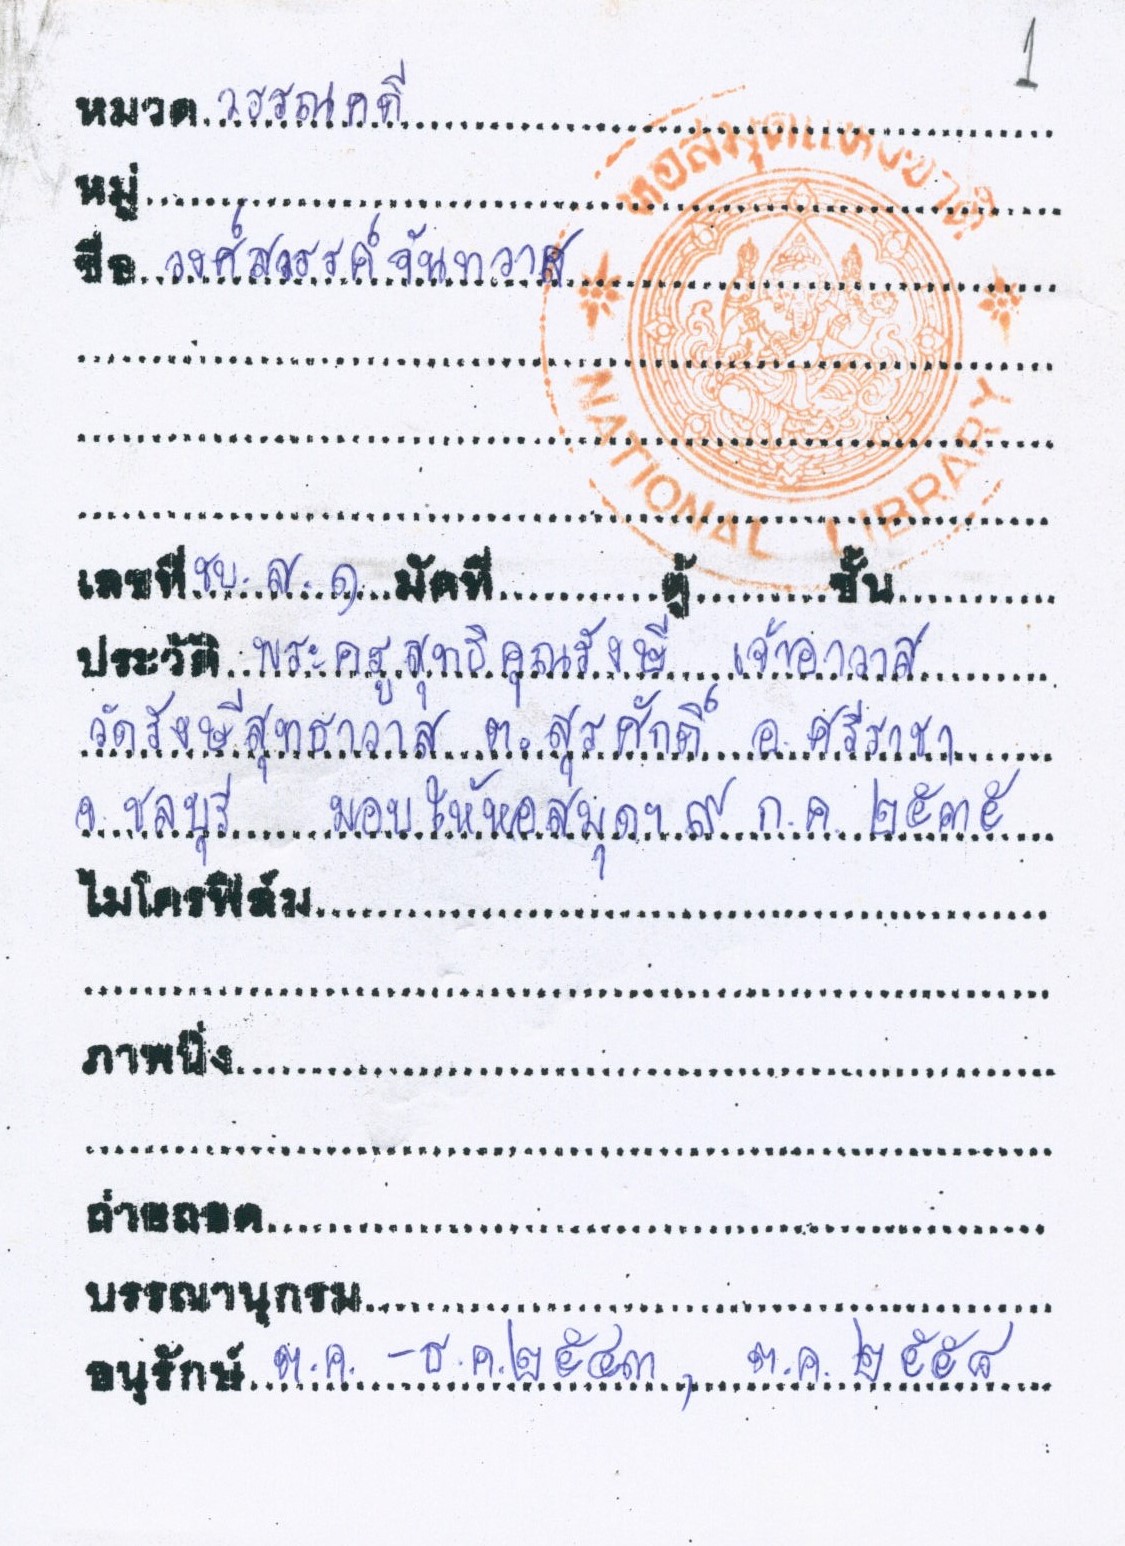 1
หมวด วรรณคดี
หอสมุดแห่งชาติ
หมู่
ชื่อ วงศ์สวรรค์จันทวาศ
NATIONAL LIBRARY
เลขที่ ชบ. ส. ๑ มัดที่ ตู้ ชั้น
ประวัติ พระครูสุทธิคุณรังษี เจ้าอาวาส
วัดรังษีสุทธาวาส ต. สุรศักดิ์ อ. ศรีราชา
จ. ชลบุรี มอบให้หอสมุดฯ ๙ ก.ค. ๒๕๓๕
ไมโครฟิล์ม
ภาพนิ่ง
ถ่ายถอด
บรรณานุกรม
อนุรักษ์ ต.ค. - ธ.ค. ๒๕๔๓, ต.ค. ๒๕๕๔